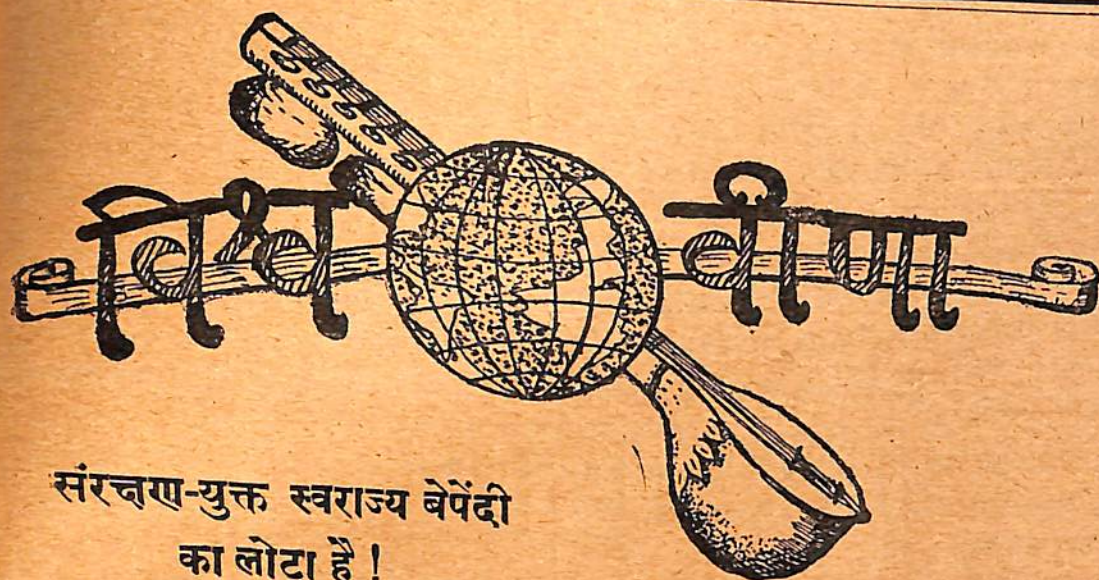 विश्व वीणा
संरक्षण-युक्त स्वराज्य बेपेंदी
का लोटा है !